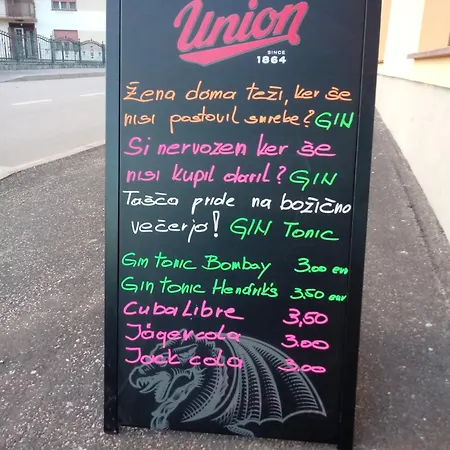 Union
SINCE
1864
Žena doma teži, ker še
nisi postavil smreke? GIN
Si nervozen ker še
nisi kupil daril? GIN
Tašča pride na božično
večerjo! GIN TONIC
Gin tonic Bombay 3.00 eur
Gin tonic Hendrik's 3,50 eur
Cuba Libre 3,50
Jägercola 3.00
Jack cola 3.00